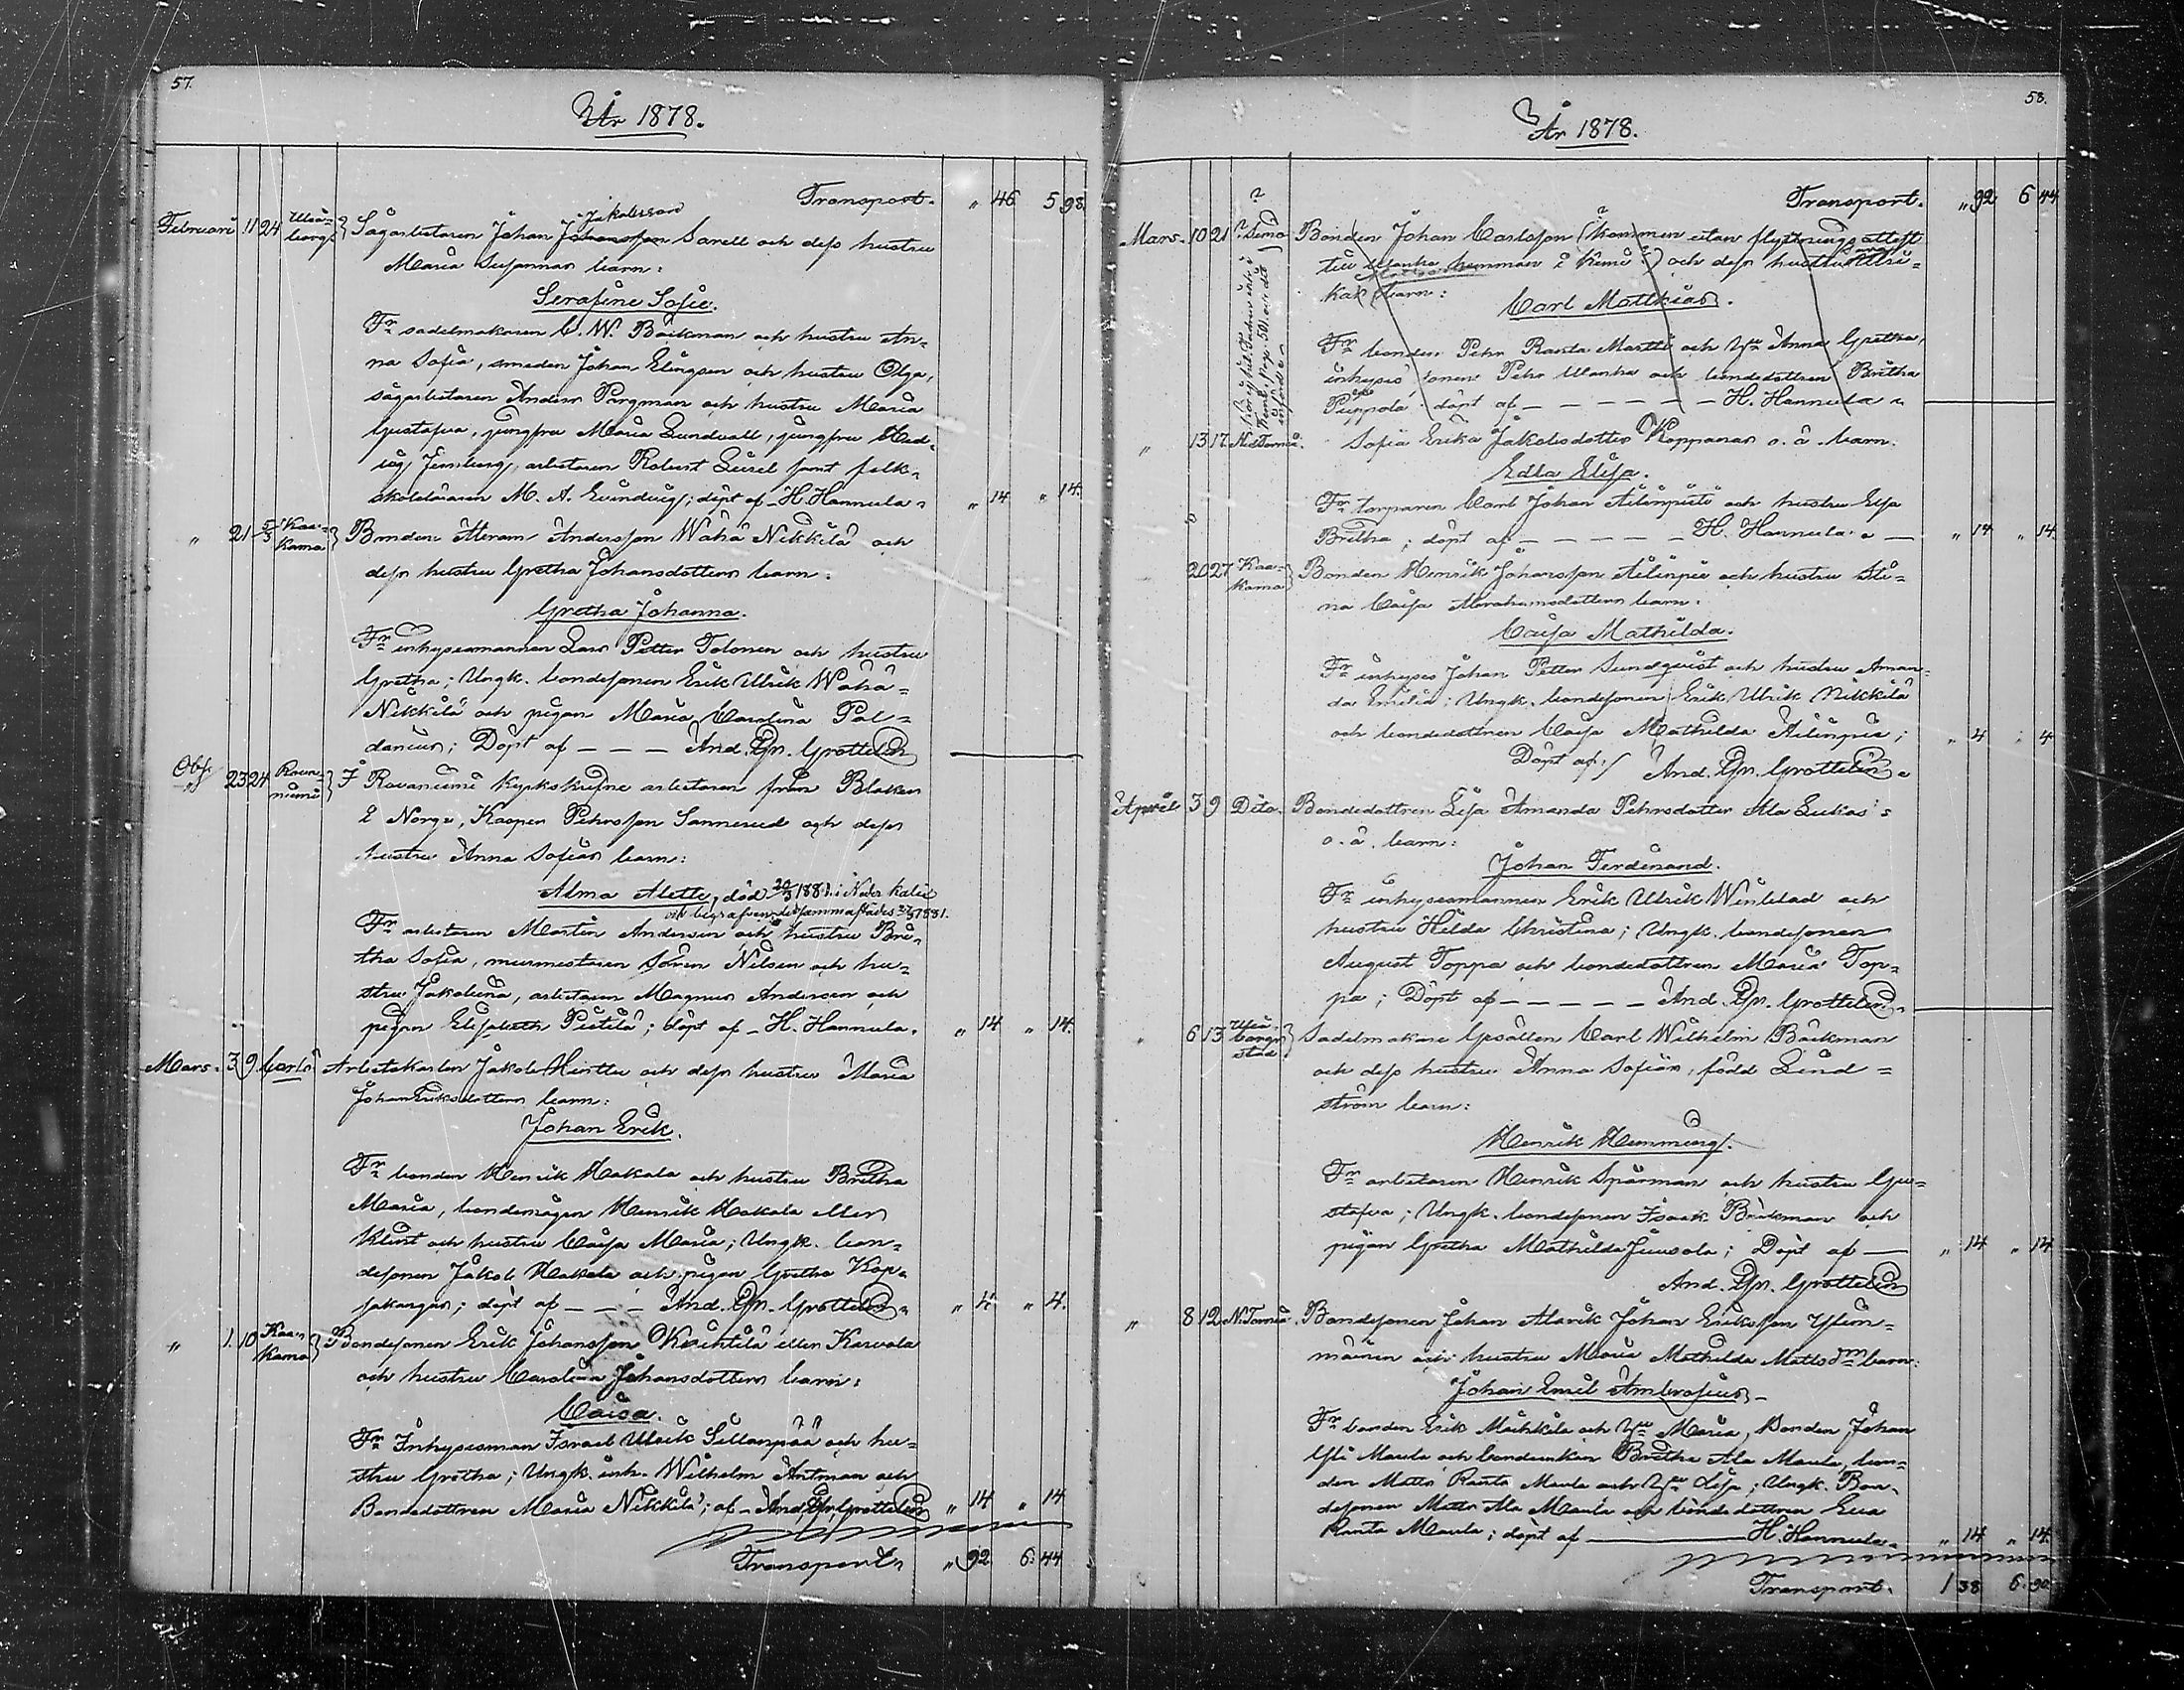 57.
År 1878.
Transport. " 46. 5 98.
Februari 11 24 Uleå-
borgs
Jakobsson
Sågarbetaren Johan Johansson Sarell och dess hustru
Maria Susannas barn:
Serafine Sofie.
Fr sadelmakaren C. W. Bäckman och hustru An-
na Sofia, smeden Johan Elingsen och hustru Olga,
sågarbetaren Anders Pargman och hustru Maria
Gustafva, jungfru Maria Lundvall, jungfru Hed-
vig, arbetaren Robert samt folk-
skoleläraren M. A. ; döpt af H. Hannula " 14 " 14.
" 21 5/3 Kaa-
kama
Bonden Abram Andersson Waha Nikkilä och
dess hustru Gretha Johansdotters barn:
Gretha Johanna.
Fr inhysesmannen Lars Petter Tolonen och hustru
Gretha; Ungk. bondesonen Erik Ulrik Waha-
Nikkilä och pigan Maria Carolina Pal-
danius; Döpt af - - - And. Gr. Grottelin
Obs. 23 24 Rova-
niemi
I Rovaniemi kyrkskrifne arbetaren från Blaker
i Norge, Kasper Pehrsson Sannerud och dess
hustru Anna Sofias barn:
Alma Alette, död 20/3 1881. i Neder Kalix
och begrafven dersammastädes 27/3 1881.
Fr arbetaren Martin Andersen och hustru Bri-
tha Sofia, murmestaren Sören Nilsen och hu-
stru Jakobina, arbetaren Magnus Andersen och
pigan Elisabeth Pietilä; döpt af - H. Hannula. " 14 " 14.
Mars. 3 9 Carlö
Arbetskarlen Jakob Hirttu och dess hustru Maria
Johan Eriksdotters barn:
Johan Erik.
Fr bonden Henrik Hakala och hustru Britha
Maria, bondemågen Henrik Hakala eller
Klint och hustru Caisa Maria; Ungk. bon-
desonen Jakob Hakala och pigan Gretha Kop-
sakangas; döpt af - - - And. Gr. Grottelin " 4 " 4.
" 1. 10 Kaa-
kama
Bondesonen Erik Johansson Knihtilä eller Karvola
och hustru Carolina Johansdotters barn:
Caisa.
Fr Inhysesman Israel Ulrik Sillanpää och hu-
stru Gretha; Ungk. inh. Wilhelm Antman och
Bondedottren Maria Nikkilä; af - And. Gr. Grottelin " 14 " 14
Transport. " 92. 6. 44
58.
År 1878.
Transport. " 92 6 44
Mars. 10 21 ? Simo
Bonden Johan Carlsson (kommen utan flyttningsattest
till hemman i Kemi?) och dess hustru Ulri-
kas barn:
Carl Matthias.
Fr bonden Pehr Ranta Martti och Hu Anna Gretha,
inhyses sonen Pehr och bondedottren Britha
Puppola; döpt af - - - - - - H. Hannula
" 13 17. Ned Torneå.
Sofia Erika Jakobsdotter Koppanas o. ä. barn:
Edla Elisa.
Fr torparen Carl Johan Ailinpieti och hustru Eva
Britha; döpt af - - - - - H. Hannula " 14 " 14.
20 27 Kaa-
kama
Bonden Henrik Johansson Ailinpie och hustru Sti-
na Caisa Abrahamsdotters barn:
Caisa Mathilda.
Fr inhyses Johan Petter Sundqvist och hustru Aman-
da Emilia; Ungk. bondesonen Erik Ulrik Nikkilä
och bondedottren Caisa Mathilda Ailinpiä; " 4 " 4
Döpt af: And. Gr. Grottelin.
April 3 9 Dito.
Bondedottren Lisa Amanda Pehrsdotter Ala Lukas's
o. ä. barn:
Johan Ferdinand.
Fr inhysesmannen Erik Ulrik Winblad och
hustru Hilda Christina; Ungk. bondesonen
August Toppa och bondedottren Maria Top-
pa; Döpt af - - - - - And. Gr. Grottelin.
" 6 13 Uleå-
borgs
stad
Sadelmakare Gesällen Carl Wilhelm Bäckman
och dess hustru Anna Sofias, född Lind-
ström barn:
Henrik Hemming.
Fr arbetaren Henrik Spårman och hustru Gu-
stafva; Ungk. bondesonen Isaak Bäckman och
pigan Gretha Mathilda Juusola; Döpt af — " 14 " 14
And. Gr. Grottelin
" 8 12 N. Torneå.
Bondesonen Johan Alarik Johan Eriksson Ylini-
mäinen och hustru Maria Mathilda Matlsdrs barn:
Johan Emil Ambrosius.
Fr bonden Erik Maihkila och Hu Maria, Bonden Johan
Yli Maula och bondeenkan Britha Ala Maula, bon-
den Matts Ranta Maula och Hu Lisa; Ungk. Bon-
desonen Matts Ala Maula och bondedottren Eva
Ranta Maula; döpt af — H. Hannula. " 14 " 14.
Transport. 1 38 6. 90.